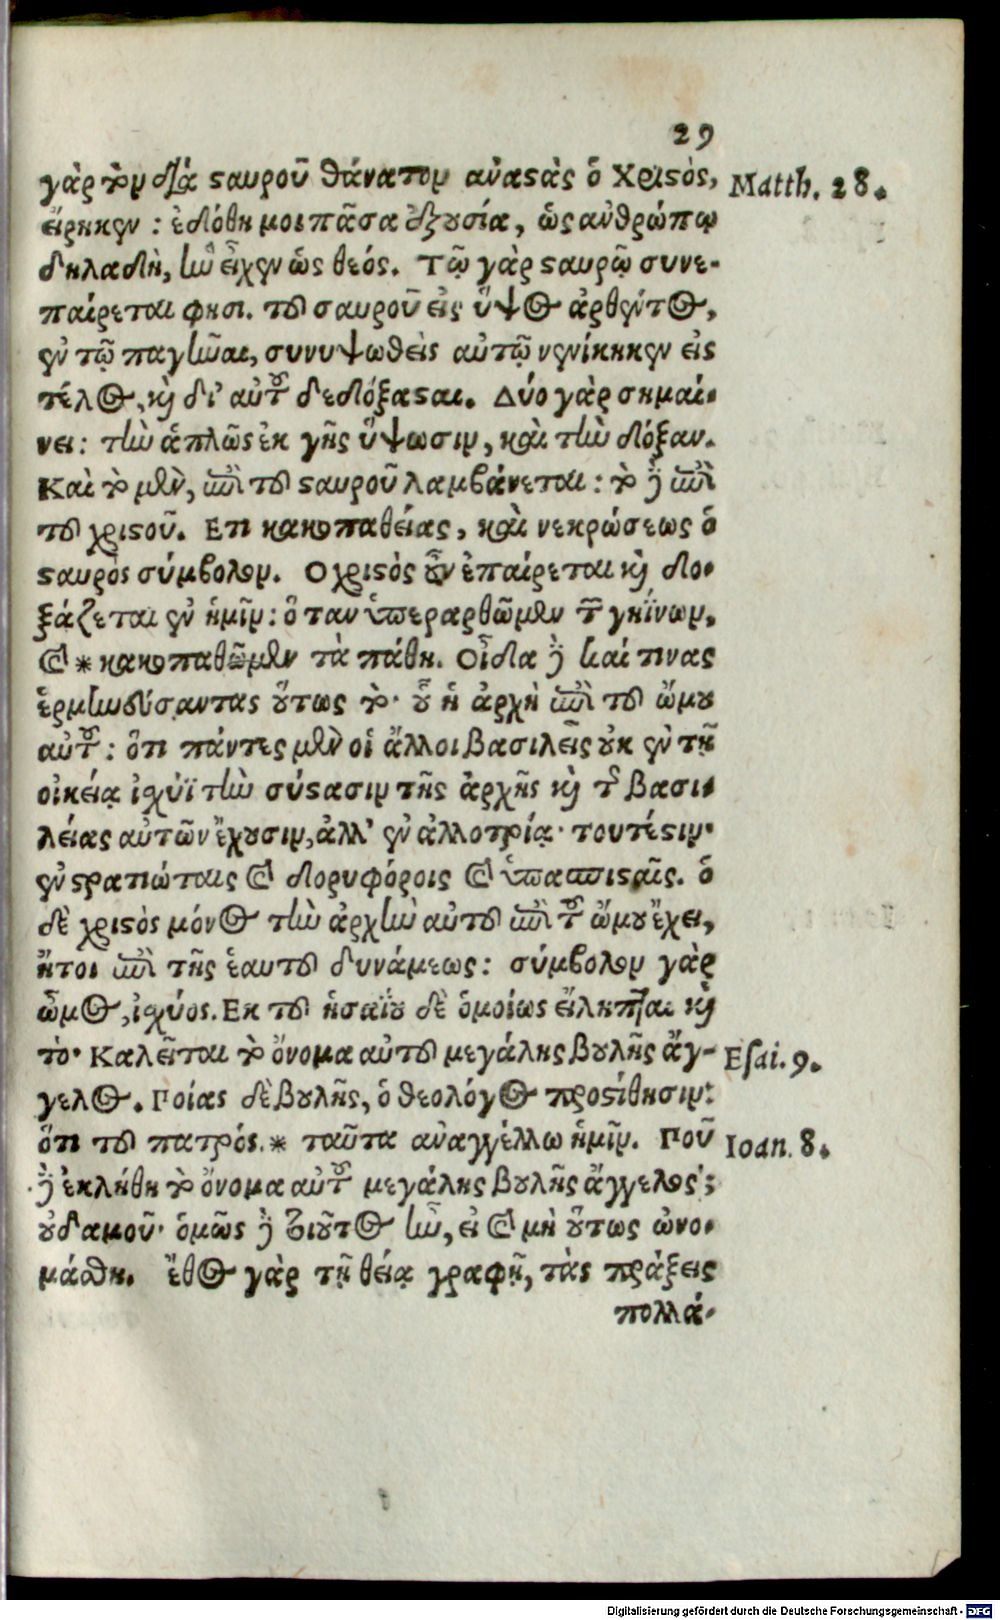 29
γὰρ τὸν διὰ σταυροῦ θάνατον ἀναστὰς ὁ Χριστὸς, Matth. 28.
εἴρηκεν : ἐδόθη μοι πᾶσα ἐξουσία, ὡς ἀνθρώπῳ
δηλαδὴ, ἣν εἶχεν ὡς θεός. Τῷ γὰρ σταυρῷ συνε-
παίρεται φησι. τοῦ σταυροῦ εἰς ὕψος ἀρθέντος,
ἐν τῷ παγῆναι, συνυψωθεὶς αὐτῷ νενίκηκεν εἰς
τέλος, καὶ δι’ αὐτοῦ δεδόξασαι. Δύο γὰρ σημαί-
νει : τὴν ἁπλῶς ἐκ γῆς ὕψωσιν, καὶ τὴν δόξαν.
Καὶ τὸ μὲν, ἐπὶ τοῦ σταυροῦ λαμβάνεται : τὸ δὲ ἐπὶ
τοῦ χριστοῦ. Ετι κακοπαθείας, καὶ νεκρώσεως ὁ
σταυρὸς σύμβολον. Ο χριστὸς οὖν ἐπαίρεται καὶ δο-
ξάζεται ἐν ἡμῖν : ὅταν ὑπεραρθῶμεν τῶν γηΐνων,
καὶ * κακοπαθῶμεν τὰ πάθη. Οἶδα δὲ καί τινας
ἑρμηνεύσαντας οὕτως τὸ· οὗ ἡ ἀρχὴ ἐπὶ τοῦ ὤμου
αὐτοῦ : ὅτι πάντες μὲν οἱ ἄλλοι βασιλεῖς οὐκ ἐν τῇ
οἰκείᾳ ἰσχύϊ τὴν σύστασιν τῆς ἀρχῆς καὶ τῆς βασι-
λείας αὐτῶν ἔχουσιν, ἀλλ’ ἐν ἀλλοτρίᾳ· τουτέστιν·
ἐν στρατιώταις καὶ δορυφόροις καὶ ὑπασπισταῖς. ὁ
δὲ χριστὸς μόνος τὴν ἀρχὴν αὐτοῦ ἐπὶ τοῦ ὤμου ἔχει,
ἤτοι ἐπὶ τῆς ἑαυτοῦ δυνάμεως : σύμβολον γὰρ
ὦμος, ἰσχύος. Εκ τοῦ ἡσαΐου δὲ ὁμοίως εἴληπται καὶ
τό· Καλεῖται τὸ ὄνομα αὐτοῦ μεγάλης βουλῆς ἄγ- Esai. 9.
γελος. Ποίας δὲ βουλῆς, ὁ θεολόγος προστίθησιν :
ὅτι τοῦ πατρός. * ταῦτα ἀναγγέλλω ἡμῖν. Ποῦ Ioan. 8.
δὲ ἐκλήθη τὸ ὄνομα αὐτοῦ μεγάλης βουλῆς ἄγγελος ;
οὐδαμοῦ· ὁμῶς δὲ τοιοῦτος ἦν, εἰ καὶ μὴ οὕτως ὠνο-
μάσθη. ἔθος γὰρ τῇ θείᾳ γραφῇ, τὰς πράξεις
πολλά-
Digitalisierung gefördert durch die Deutsche Forschungsgemeinschaft - DFG